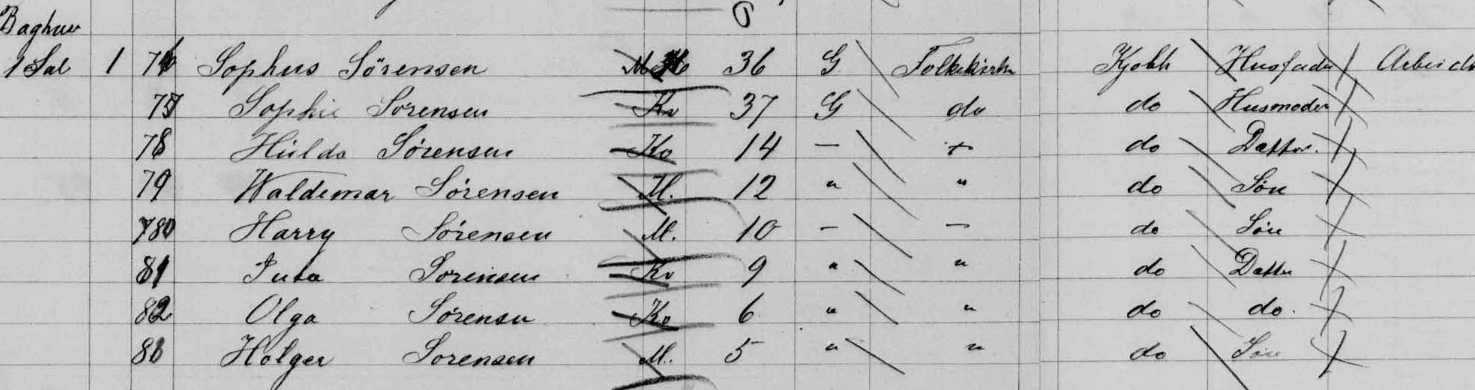 Baghus
1 Sal 1 76 Sophus Sörensen M 36 G Folkekirken Kjobh Husfader Arbeids
77 Sophie Sorensen Kv 37 G do do Husmoder
78 Hulda Sörensen Kv 14 — + do Datter
79 Waldemar Sörensen M. 12 " " do Sön
780 Harry Sörensen M. 10 — — do Sön
81 Juta Sorensen Kv 9 " " do Datter
82 Olga Sorensen Kv 6 " " do do.
Holger Sorensen M. 5 " " do Sön